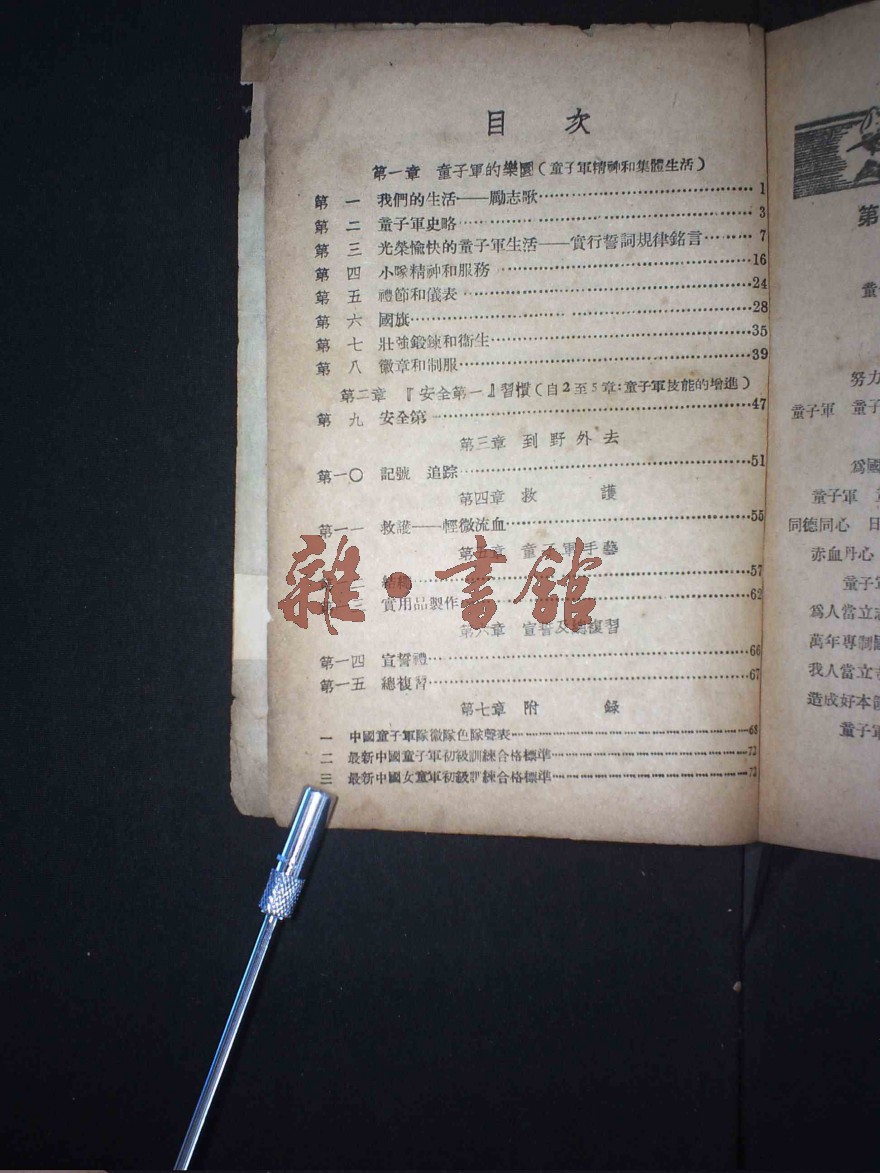 目 次
第一章 童子軍的樂園(童子軍精神和集體生活)
第 一 我們的生活——勵志歌………1
第 二 童子軍史略………3
第 三 光榮愉快的童子軍生活——實行誓詞規律銘言………7
第 四 小隊精神和服務………16
第 五 禮節和儀表………24
第 六 國旗………28
第 七 壯強鍛鍊和衞生………35
第 八 徽章和制服………39
第二章 『安全第一』習慣(自2至5章:童子軍技能的增進)
第 九 安全第………47
第三章 到野外去
第一〇 記號 追踪………51
第四章 救 護
第一一 救護——輕微流血………55
第五章 童子軍手藝
結繩………57
實用品製作………62
第六章 宣誓及總複習
第一四 宣誓禮………66
第一五 總複習………67
第七章 附 錄
一 中國童子軍隊徽隊色隊聲表………68
二 最新中國童子軍初級訓練合格標準………73
三 最新中國女童軍初級訓練合格標準………73
雜·書館
第
童子軍 童子
努力
爲國
童子軍
同德同心 日
赤血丹心
童子軍
爲人當立志
萬年專制
我人當立志
造成好本領
童子軍